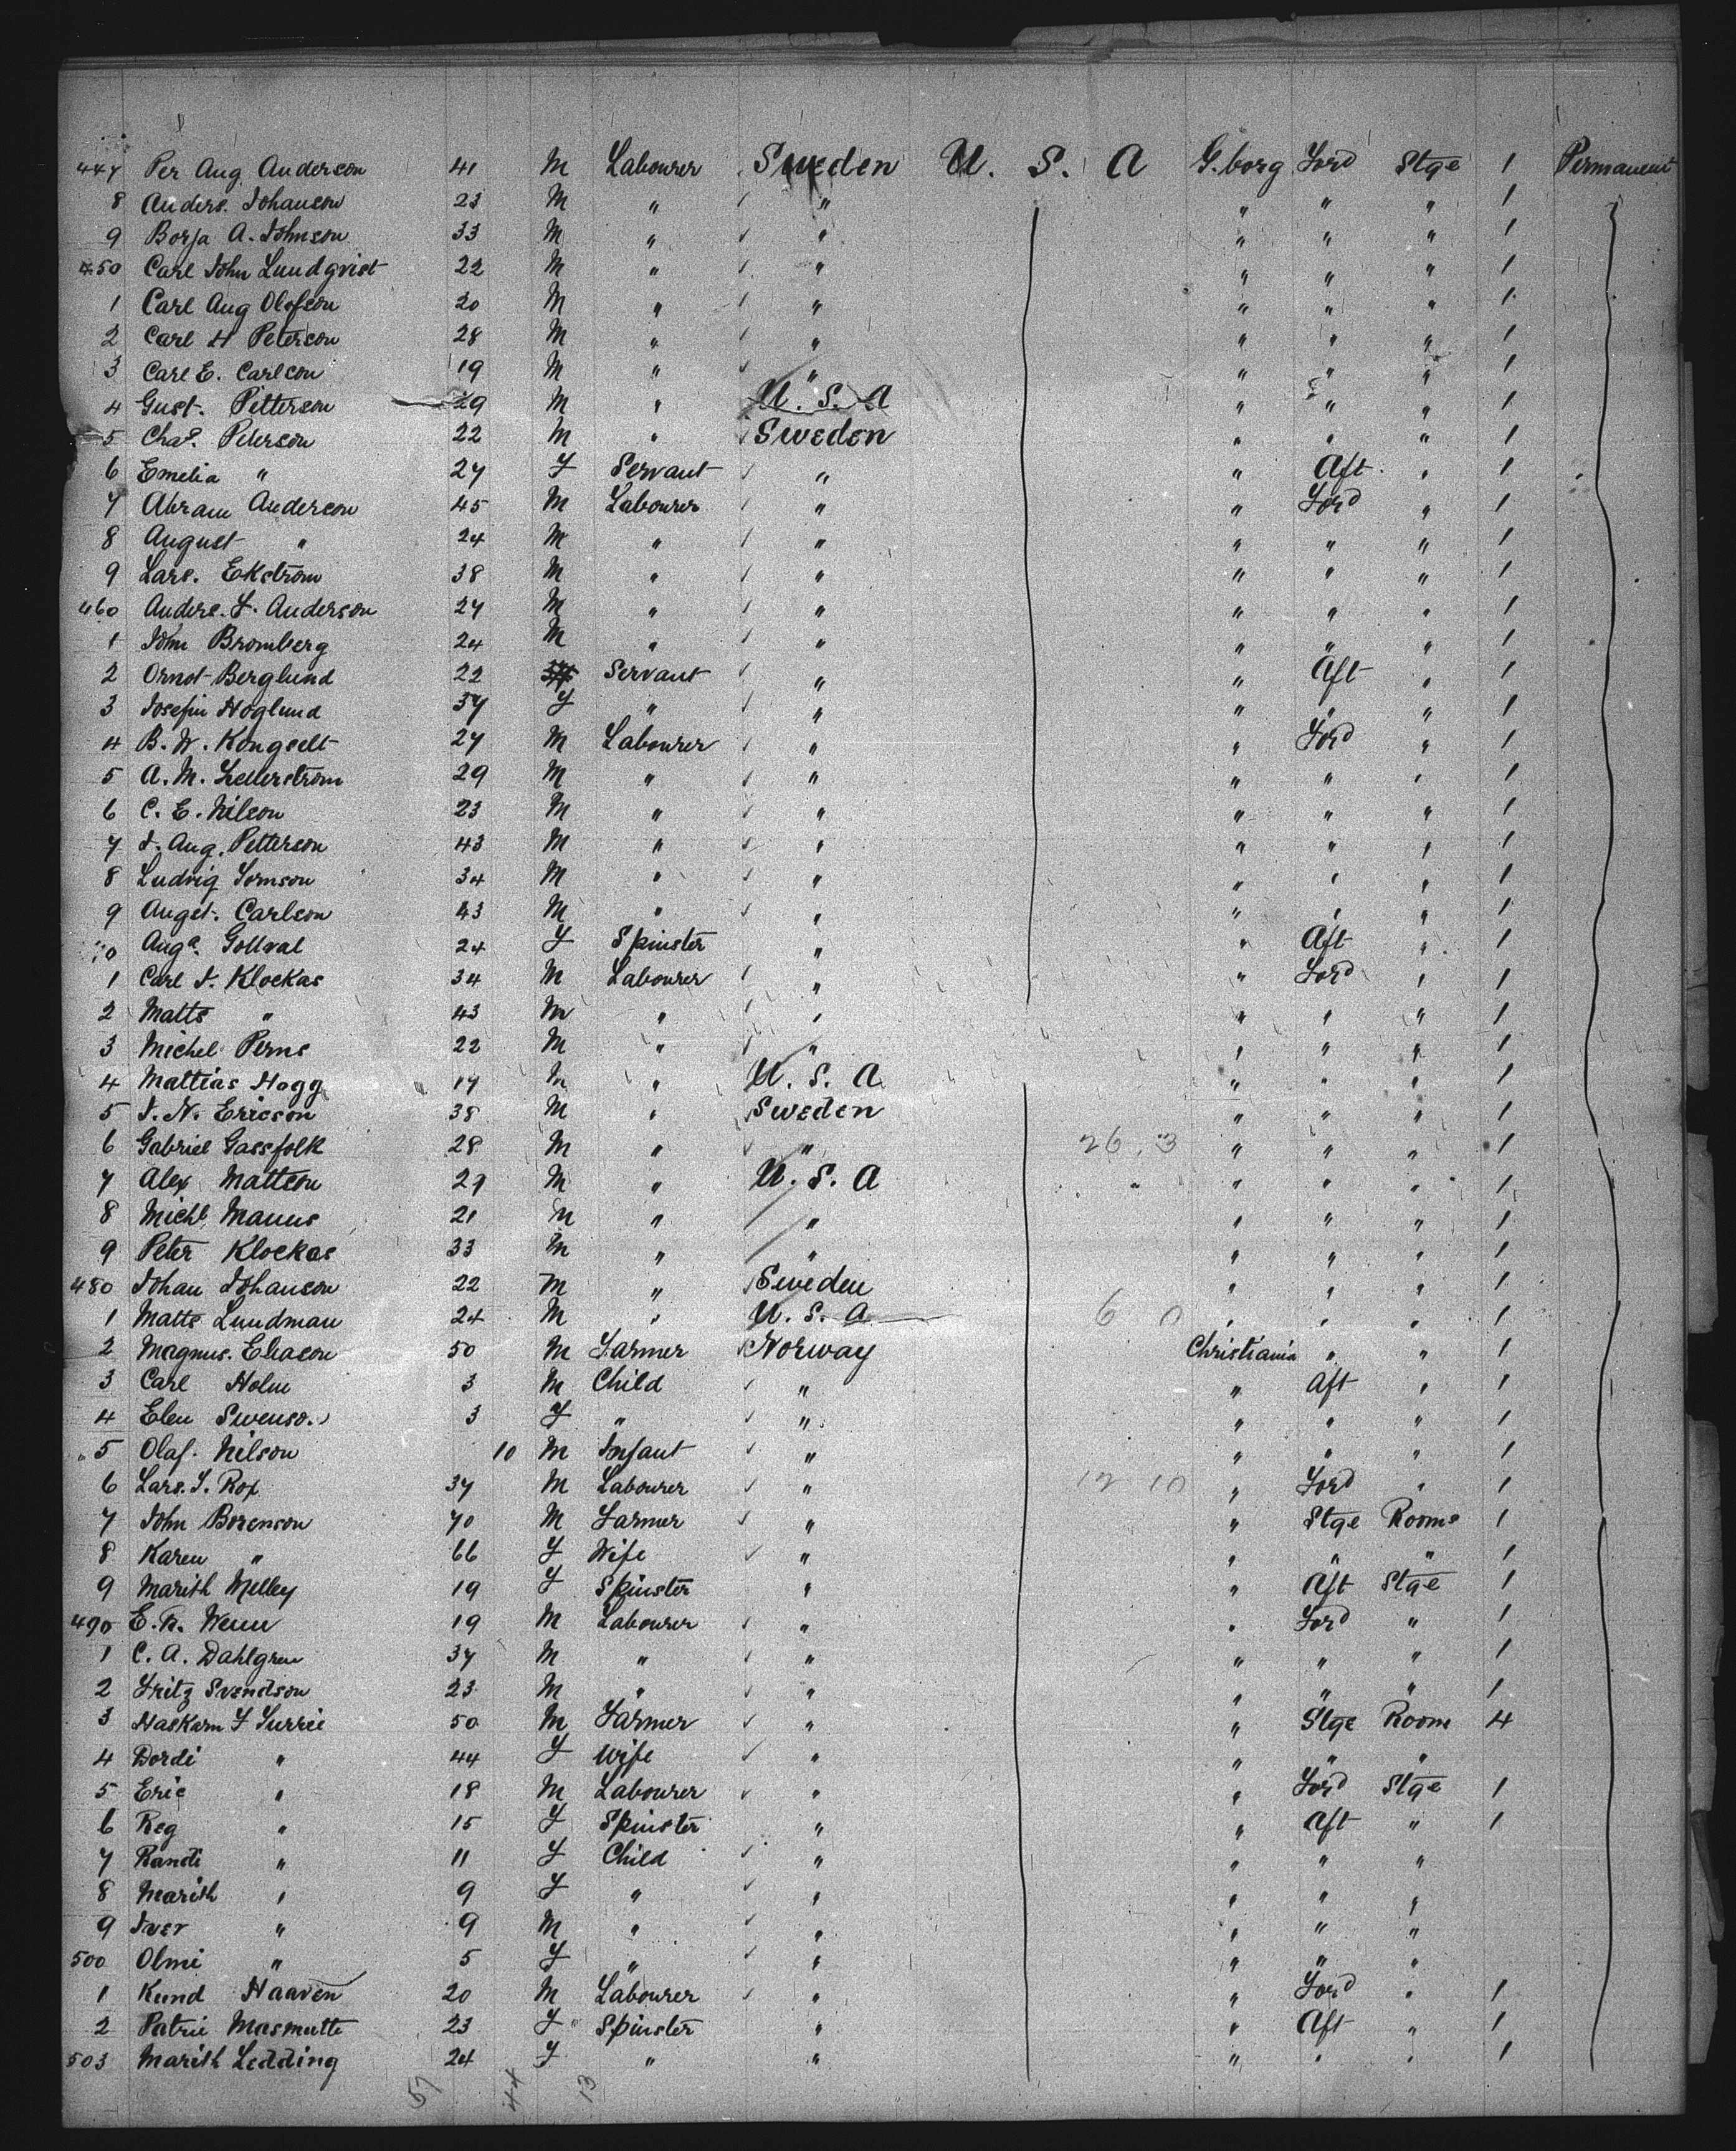 447 Per Aug Anderson 41 M Labourer Sweden U. S. A G.borg Ford Stge 1 Permanent
8 Anders. Johanson 23 M " " " " " 1
9 Borja A. Johnson 33 M " " " " " 1
450 Carl John Lundqvist 22 M " " " " " 1
1 Carl Aug Olofson 20 M " " " " " 1
2 Carl H Peterson 28 M " " " " " 1
3 Carl E. Carlson 19 M " " " " " 1
4 Gust. Petterson 29 M " U. S. A " " " 1
5 Chas. Peterson 22 M " Sweden " " " 1
6 Emelia " 27 F Servant " " Aft " 1
7 Abram Anderson 45 M Labourer " " Ford " 1
8 August " 24 M " " " " " 1
9 Lars. Ekstrom 38 M " " " " " 1
460 Anders. F. Anderson 27 M " " " " " 1
1 John Bromberg 24 M " " " " " 1
2 Ornst Berglund 22 Servant " " Aft " 1
3 Josefin Hoglund 37 F " " " " " 1
4 B. W. Kongselt 27 M Labourer " " Ford " 1
5 A. M. Lellerstrom 29 M " " " " " 1
6 C. E. Nilson 23 M " " " " " 1
7 J. Aug. Petterson 43 M " " " " " 1
8 Ludvig Fornson 34 M " " " " " 1
9 Augst. Carlson 43 M " " " " " 1
70 Auga. Gollval 24 F Spinster " " Aft " 1
1 Carl J. Klockas 34 M Labourer " " Ford " 1
2 Matts " 43 M " " " " " 1
3 Michel Perns 22 M " " " " " 1
4 Mattias Hogg 17 M " U. S. A " " " 1
5 J. N. Ericson 38 M " Sweden " " " 1
6 Gabriel Gassfolk 28 M " " 26 3 " " " 1
7 Alex Mattson 27 M " U. S. A " " " " 1
8 Michl Manns 21 M " " " " " 1
9 Peter Klockas 33 M " " " " " 1
480 Johan Johanson 22 M " Sweden " " " 1
1 Matts Lundman 24 M " U. S. A 6 0 " " " 1
2 Magnus. Eliason 50 M Farmer Norway Christiania " " 1
3 Carl Holm 3 M Child " " Aft " 1
4 Elen Swenso. 3 F " " " " " 1
5 Olaf. Nilson 10 M Infant " " " " 1
6 Lars. S. Rox 37 M Labourer " 12 10 " Ford " 1
7 John Borenson 70 M Farmer " " Stge Rooms 1
8 Karen " 66 F Wife " " " " 1
9 Marith Melley 19 F Spinster " " Aft Stge 1
490 E. N. Wenn 19 M Labourer " " Ford " 1
1 C. A. Dahlgren 37 M " " " " " 1
2 Fritz Svendson 23 M " " " " " 1
3 Haskarn F Surrie 50 M Farmer " " Stge Room 4
4 Dordi " 44 F Wife " " " "
5 Eric " 18 M Labourer " " Ford Stge 1
6 Reg " 15 F Spinster " " Aft " 1
7 Randi " 11 F Child " " " "
8 Marith " 9 F " " " " "
9 Iver " 9 M " " " " "
500 Olmi " 5 F " " " " "
1 Kund Haaven 20 M Labourer " " Ford " 1
2 Patrie Masmutte 23 F Spinster " " Aft " 1
503 Marith Ledding 24 F " " " " " 1
57 44 13